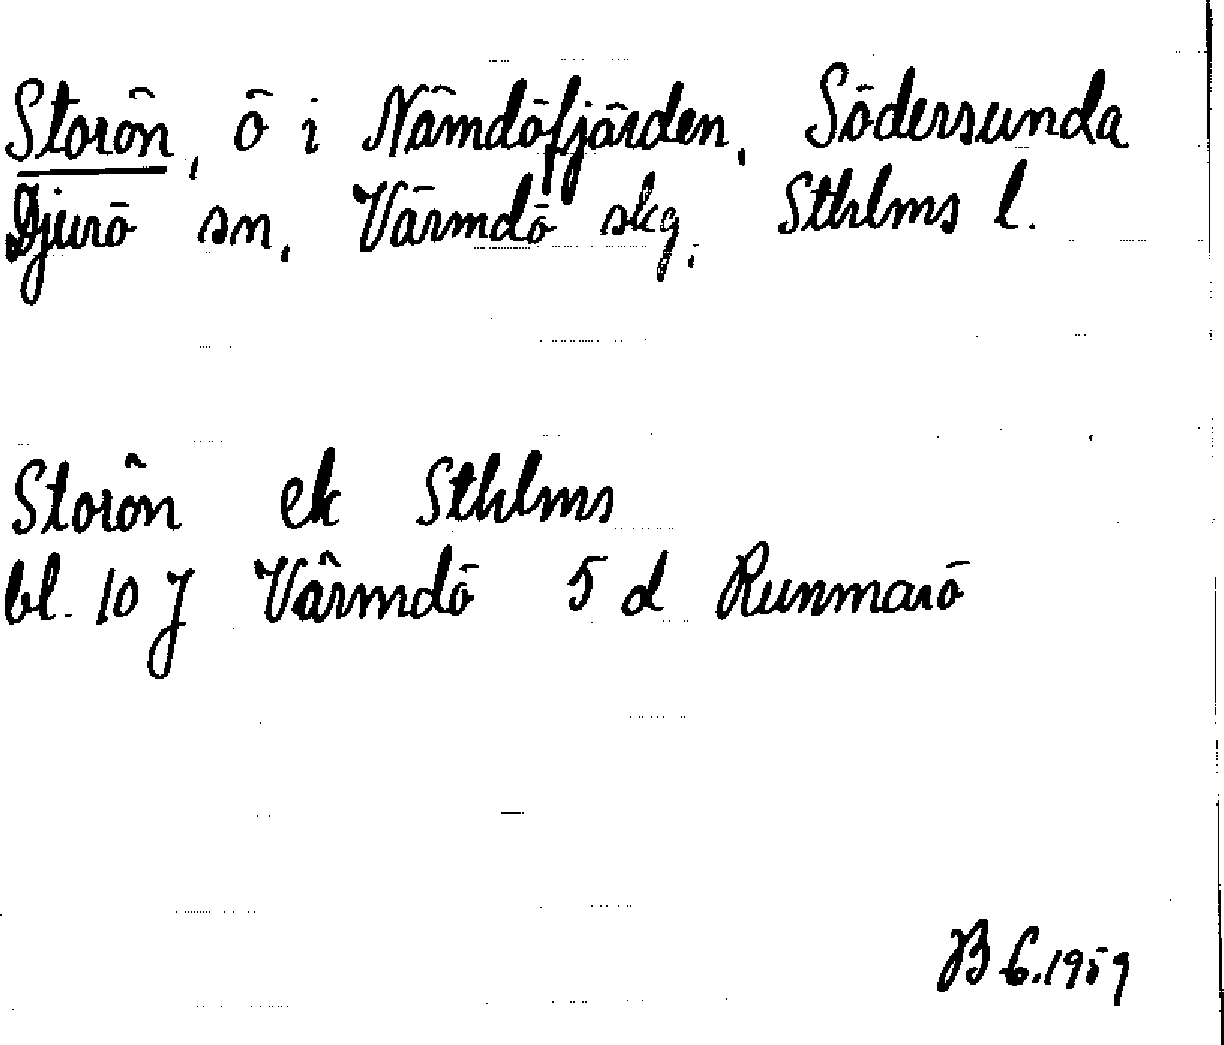 Storön, ö i Nämdöfjärden, Södersunda
Djurö sn, Värmdö skg, Sthlms l.
Storön ek Sthlms
bl. 10 J Värmdö 5 d Runmarö
B G.1959